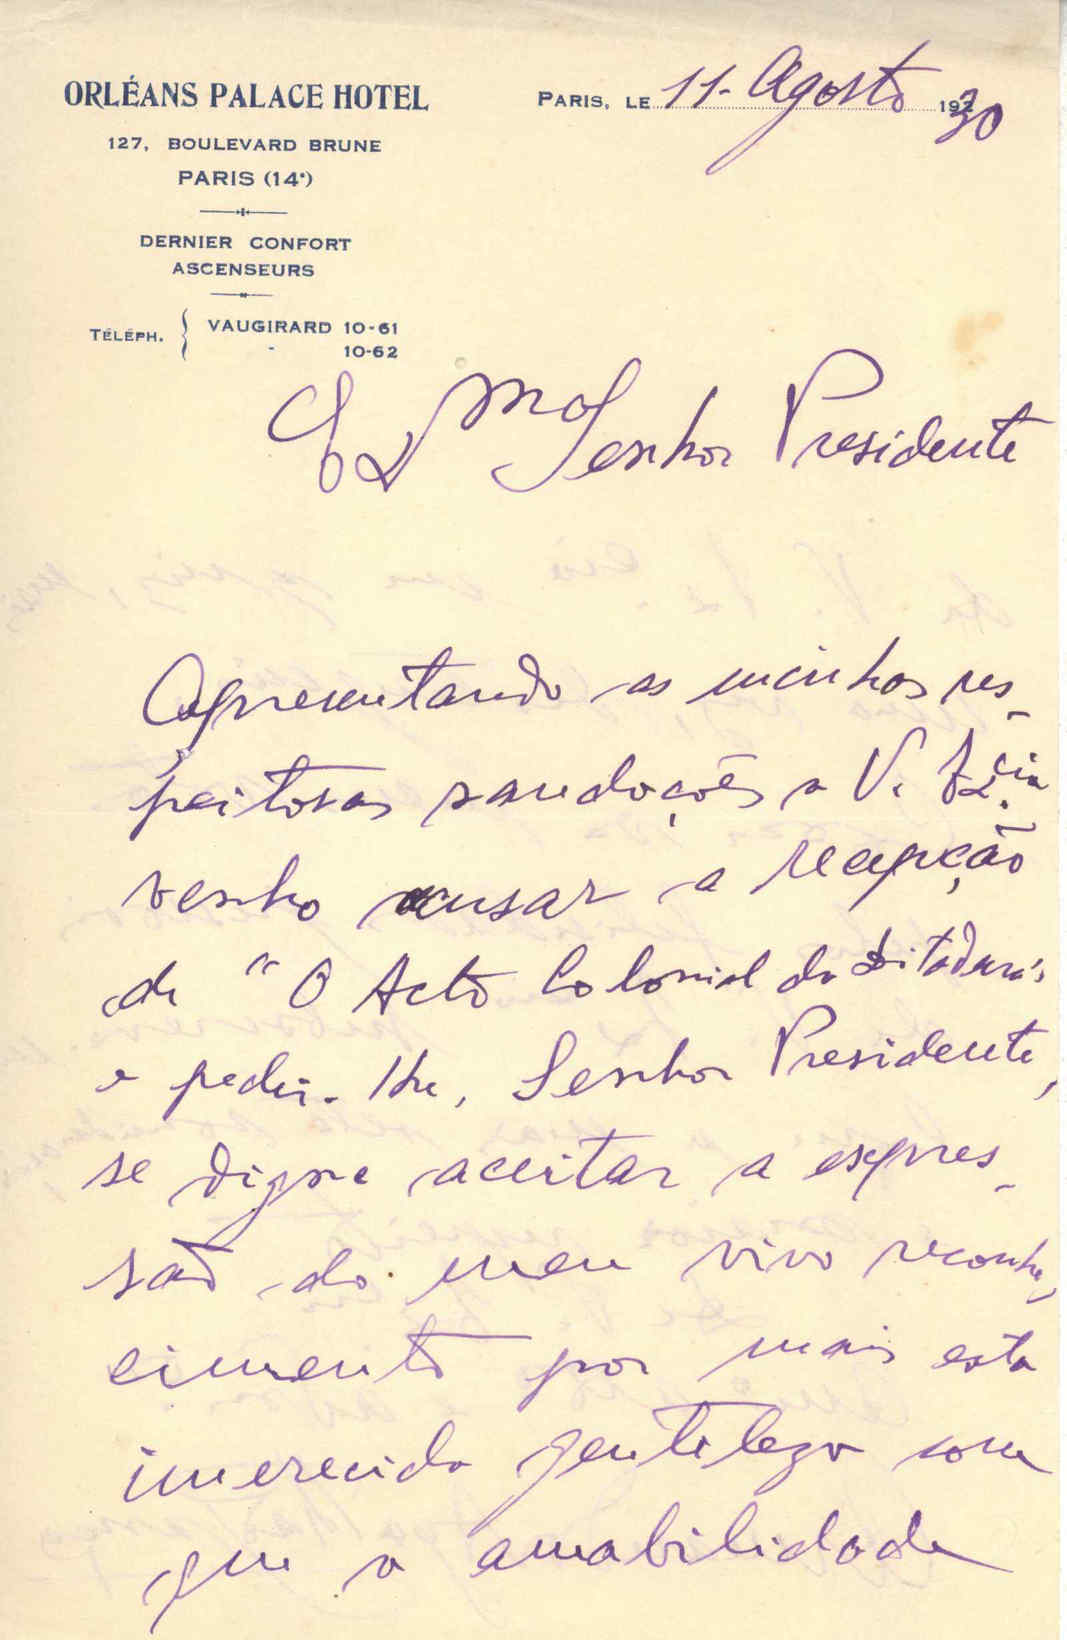 ORLÉANS PALACE HOTEL
127, BOULEVARD BRUNE
PARIS (14e)
DERNIER CONFORT
ASCENSEURS
TÉLÉPH. { VAUGIRARD 10-61
- 10-62
PARIS, LE 11- Agosto 1930
Ex.mo Senhor Presidente
Apresentando as minhas res-
peitosas saudações a V. Ex.cia
venho acusar a recepção
de "O Acto Colonial da Ditadura"
e pedir-lhe, Senhor Presidente,
se digne aceitar a expres-
são do meu vivo reconhe-
cimento por mais esta
imerecida gentileza com
que a amabilidade